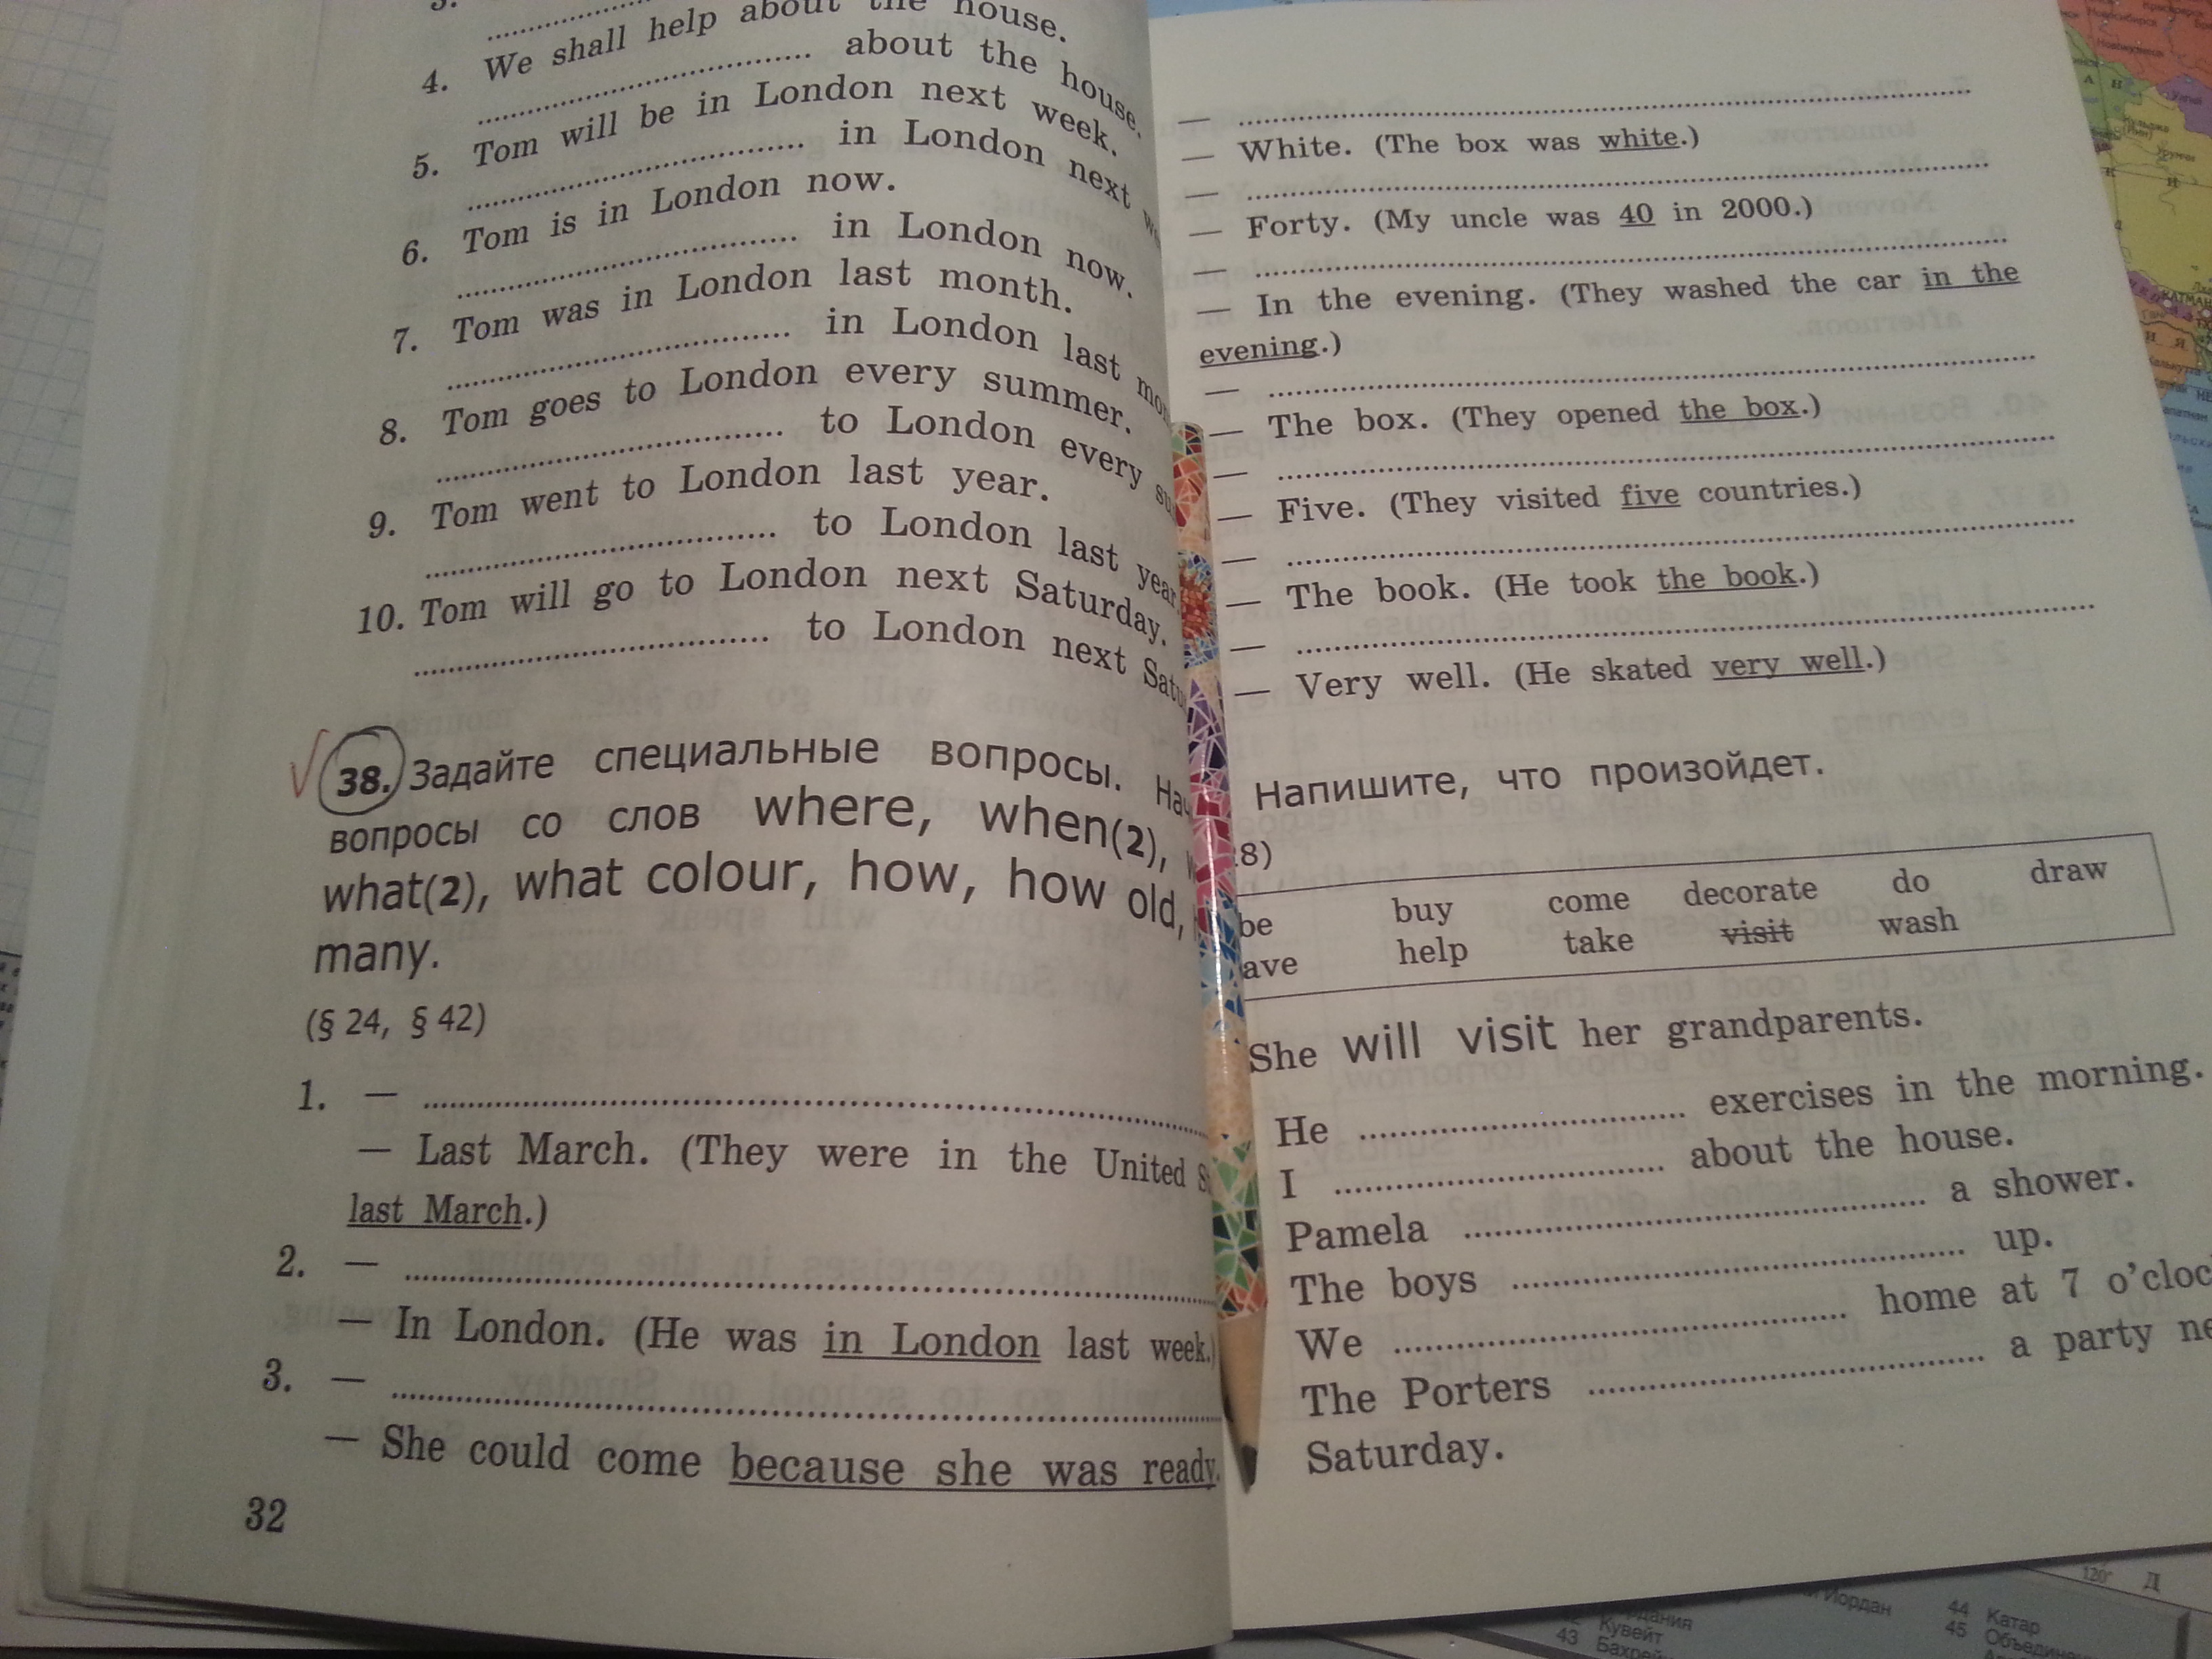 4. We shall help about the house.
.......... about the house.
5. Tom will be in London next week.
.......... in London next
6. Tom is in London now.
.......... in London now.
7. Tom was in London last month.
.......... in London last
8. Tom goes to London every summer.
.......... to London every
9. Tom went to London last year.
.......... to London last year.
10. Tom will go to London next Saturday.
.......... to London next
38. Задайте специальные вопросы.
вопросы со слов where, when(2),
what(2), what colour, how, how old,
many.
(§ 24, § 42)
1. — ..........
— Last March. (They were in the United
last March.)
2. — ..........
— In London. (He was in London last week.)
3. — ..........
— She could come because she was ready.
32
— ..........
— White. (The box was white.)
— ..........
— Forty. (My uncle was 40 in 2000.)
— ..........
— In the evening. (They washed the car in the
evening.)
— ..........
— The box. (They opened the box.)
— ..........
— Five. (They visited five countries.)
— ..........
— The book. (He took the book.)
— ..........
— Very well. (He skated very well.)
Напишите, что произойдет.
8)
be buy come decorate do draw
help take visit wash
She will visit her grandparents.
He .......... exercises in the morning.
I .......... about the house.
Pamela .......... a shower.
The boys .......... up.
We .......... home at 7
The Porters .......... a party
Saturday.
120°
Д
Иордан
44 Катар
45
Кувейт
43